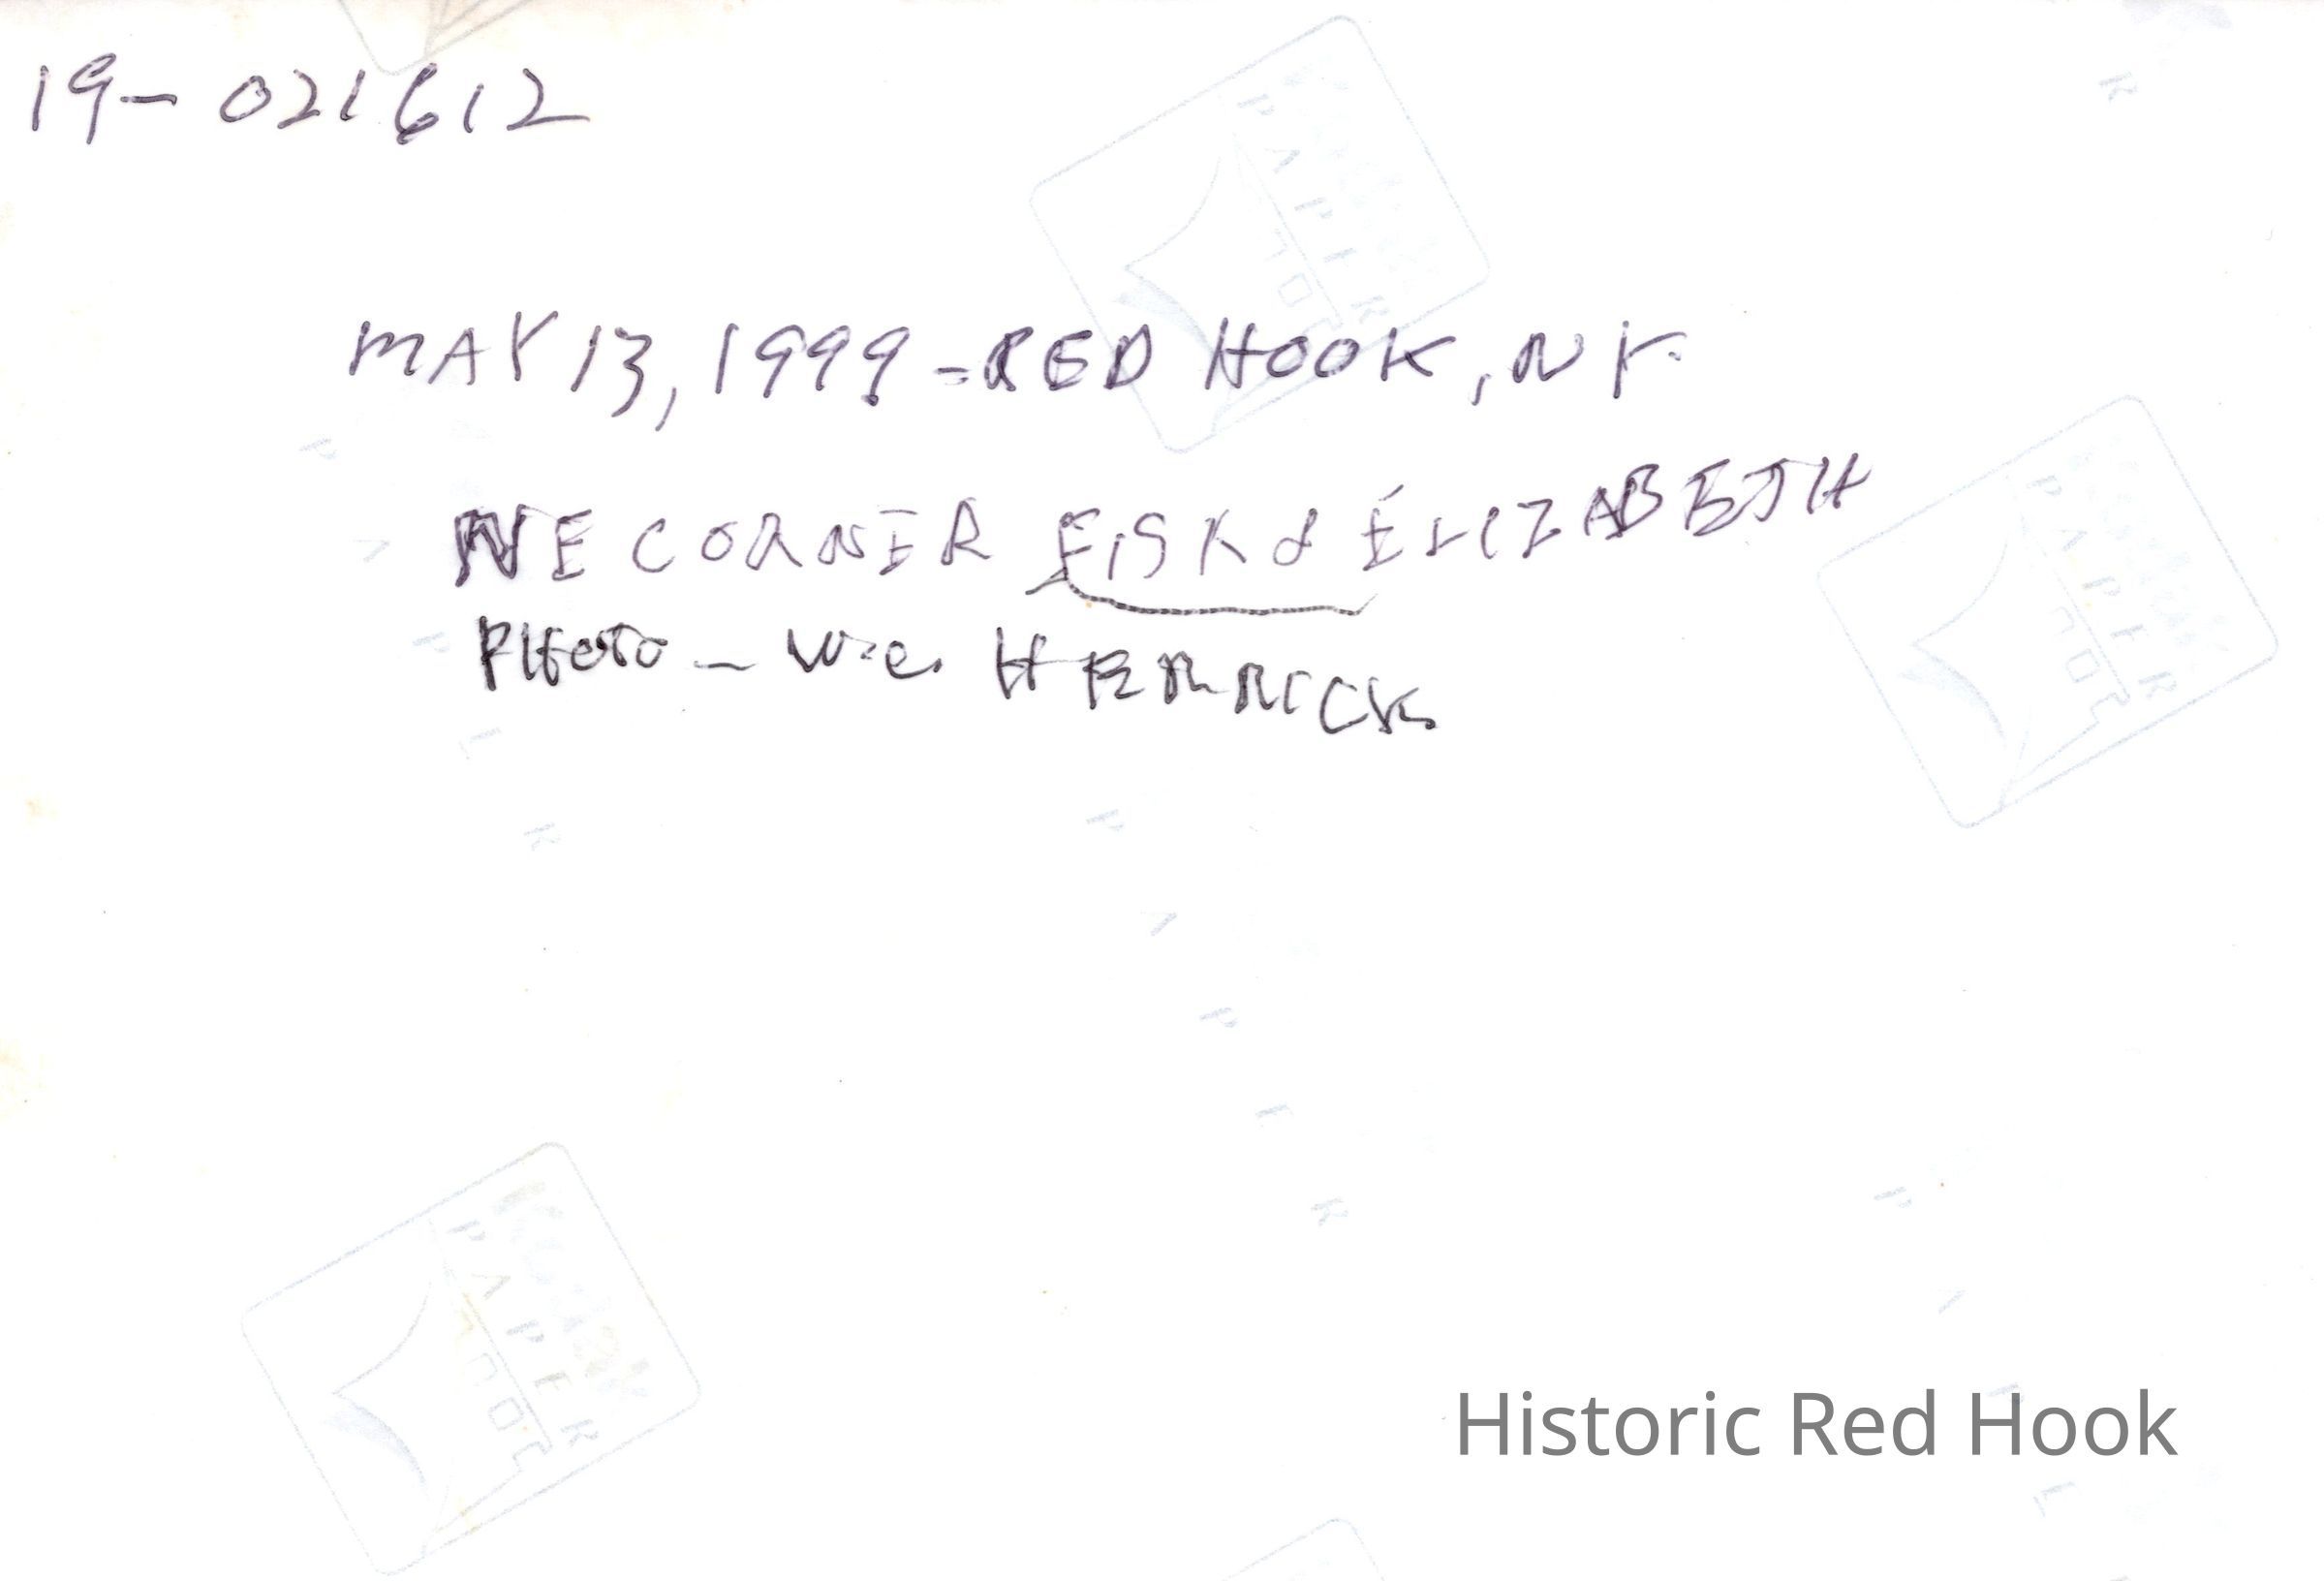 19- 021612
MAY 13, 1999 - RED HOOK, NY.
NE CORNER FISK & ELIZABETH
PHOTO - W.C. HERRICK
Historic Red Hook